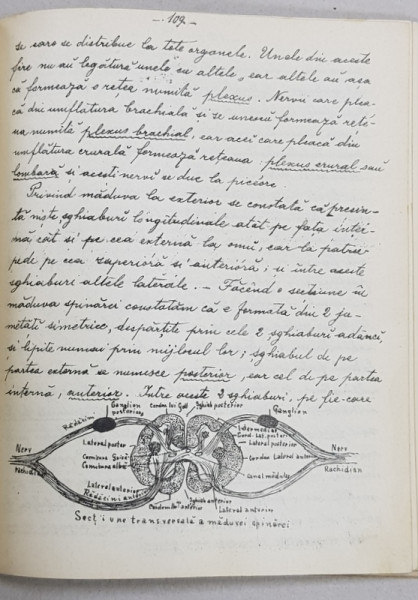 - 109 -
se care se distribue la tóte orgonele. Unele din aceste
fire nu au legătură unele cu altele, ear altele au așa
că formează o rețea numită plexus. Nervii care plea-
că din umflătura brachială și se unesc formează rețe-
ua numită plexus brachial, iar acei care pleacă din
umflătura crurală formează rețeaua plexus crural sau
lombară și acesti nervi se duc la picióre.
Privind măduva la exterior se constată că presin-
tă niște sghiaburi longitudinale atât pe fața inter-
nă cât și pe cea externă la omŭ, ear la patru-
pede pe cea superióră și anterióră; și intre aceste
sghiaburi altele laterale. — Făcênd o secțiune în
măduva spinărei constatăm că e formată din 2 ju-
metăți simetrice, despărțite prin cele 2 sghiaburi adânci
și lipite numai prin mijlocul lor; sghiabul de pe
partea externă se numesce posterior, ear cel de pe partea
internă, anterior. Intre aceste 2 sghiaburi, pe fie-care
Rădăcini
Ganglion
posterior
Cordon lui Goll
Sghiab posterior
Ganglion
Intermediar
Cord. Lat. posterior
Lateral posterior
Lateral poster
Nerv
Rachidian
Comisura Gri
Comisura albă
Cordon Lateral anterior
canal medular
Nerv
Rachidian
Lateral anterior
Rădăcini
anterior
Sghiab anterior
Lateral anterior
Secțiune transversală a măduvei spinărei